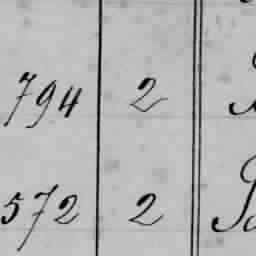 794 2
572 2